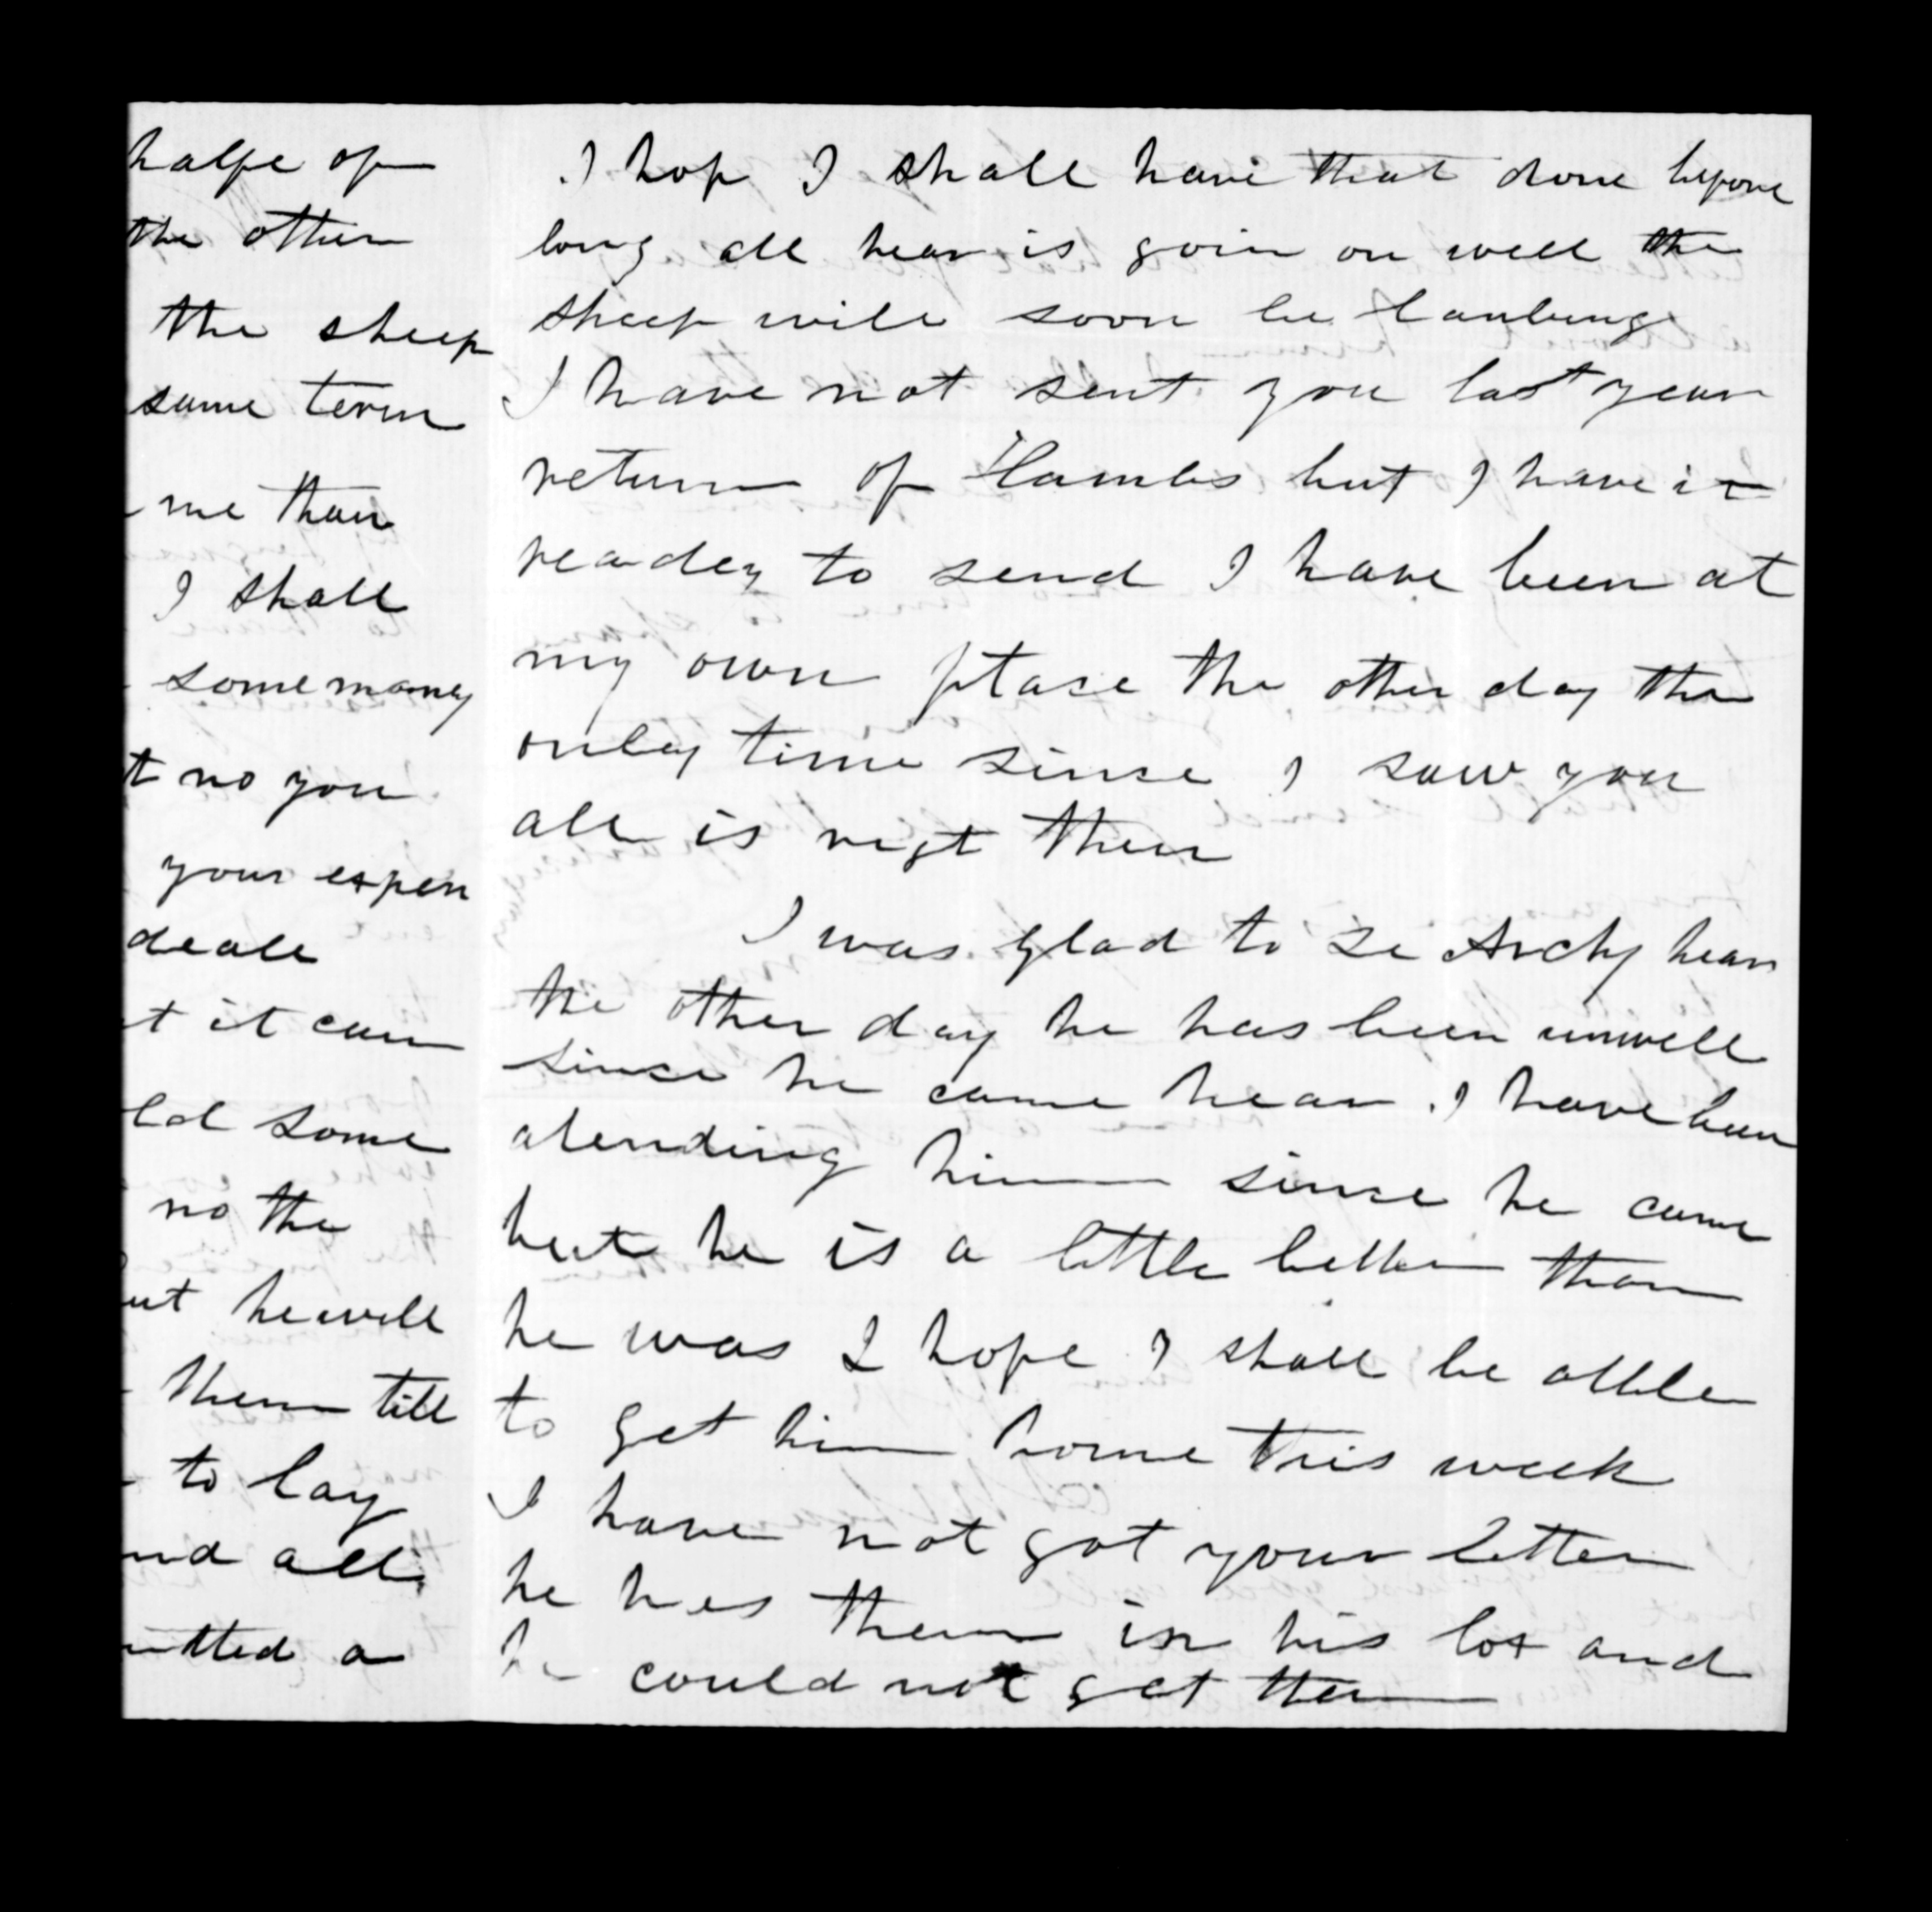 halfe of
the other
the sheep
same term
me than
I shall
some money
t no you
your expen
deall
t it can
ld some
no the
ut he will
them till
to lay
nd all
mitted a
I hop I shall have that done before
long all hear is goin on well the
sheep will soon be lambing
I have not sent you last year
return of lambs but I have it
readey to send I have been at
my own place the other day the
onley time since I saw you
all is rigt ther
I was glad to se Archy hear
the other day he has been unwell
since he came hear. I have been
atending him since he came
but he is a little better than
he was I hope I shall be able
to get him home this week
I have not got your letter
he hes them in his box and
he could not get them